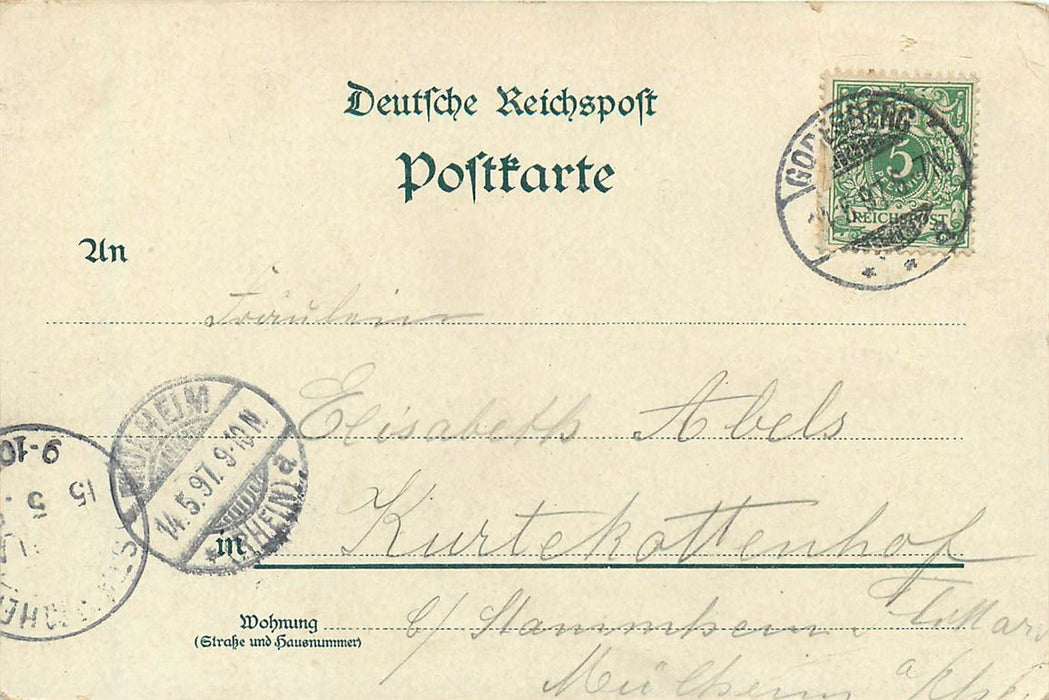 Deutsche Reichspost
Postkarte
GODESBERG
5
REICHSPOST
5.97
a
An
Fräulein
Elisabeth Abels
MÜLHEIM
14.5.97. 9-10 N
(RHEIN) a
9-10
15
5
in Kurtekottenhof
Wohnung
(Straße und Hausnummer)
b/ Stammheim
Mülheim a/Rh